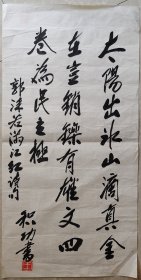 太陽出冰山滴真金
在豈銷鑠有雄文四
卷為民立極
郭沫若滿江紅詞
和功書